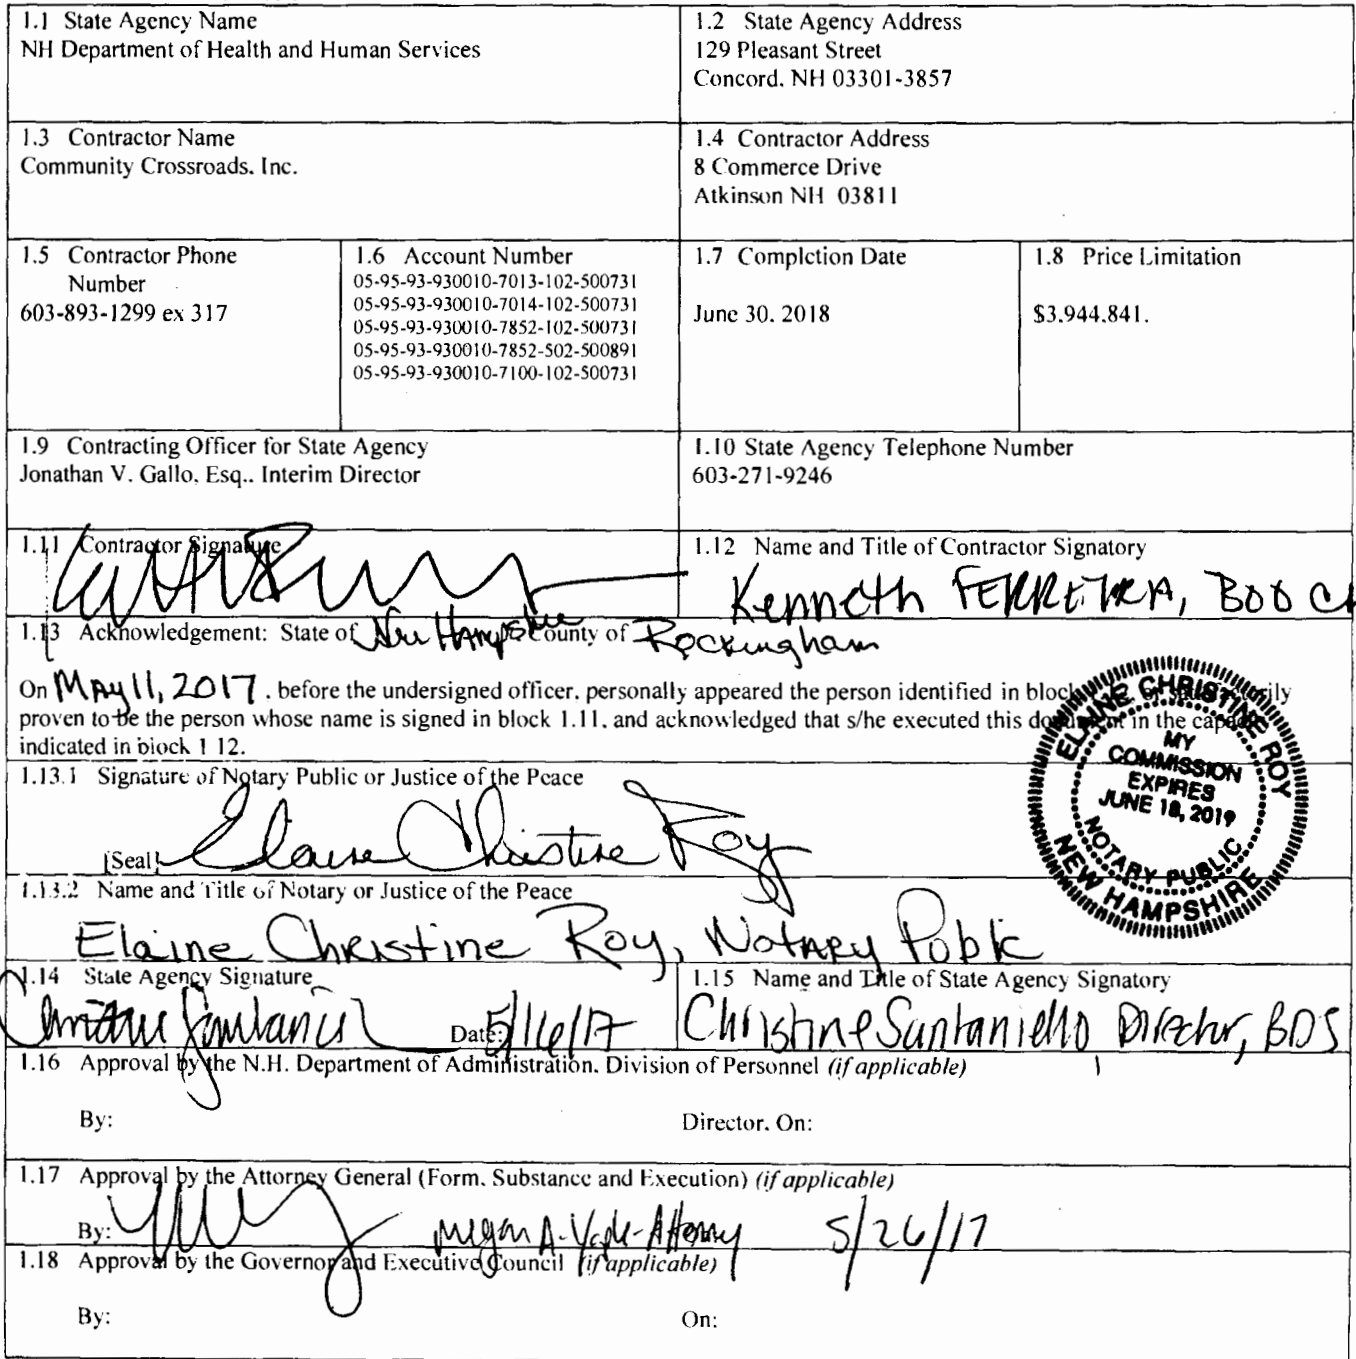 1.1 State Agency Name
NH Department of Health and Human Services
1.2 State Agency Address
129 Pleasant Street
Concord, NH 03301-3857
1.3 Contractor Name
Community Crossroads, Inc.
1.4 Contractor Address
8 Commerce Drive
Atkinson NH 03811
1.5 Contractor Phone
Number
603-893-1299 ex 317
1.6 Account Number
05-95-93-930010-7013-102-500731
05-95-93-930010-7014-102-500731
05-95-93-930010-7852-102-500731
05-95-93-930010-7852-502-500891
05-95-93-930010-7100-102-500731
1.7 Completion Date
June 30, 2018
1.8 Price Limitation
$3,944,841.
1.9 Contracting Officer for State Agency
Jonathan V. Gallo, Esq., Interim Director
1.10 State Agency Telephone Number
603-271-9246
1.11 Contractor Signature
1.12 Name and Title of Contractor Signatory
Kenneth FERREIRA, BOD Ch
1.13 Acknowledgement: State of New Hampshire County of Rockingham
On May 11, 2017, before the undersigned officer, personally appeared the person identified in block
proven to be the person whose name is signed in block 1.11, and acknowledged that s/he executed this document in the capacity
indicated in block 1.12.
ELAINE CHRISTINE ROY
MY
COMMISSION
EXPIRES
JUNE 18, 2019
NOTARY PUBLIC
NEW HAMPSHIRE
1.13.1 Signature of Notary Public or Justice of the Peace
[Seal] Elaine Christine Roy
1.13.2 Name and Title of Notary or Justice of the Peace
Elaine Christine Roy, Notary Public
1.14 State Agency Signature
Date: 5/16/17
1.15 Name and Title of State Agency Signatory
Christine Santaniello Director, BDS
1.16 Approval by the N.H. Department of Administration, Division of Personnel (if applicable)
By:
Director, On:
1.17 Approval by the Attorney General (Form, Substance and Execution) (if applicable)
By: Megan A. - Attorney 5/26/17
1.18 Approval by the Governor and Executive Council (if applicable)
By:
On: